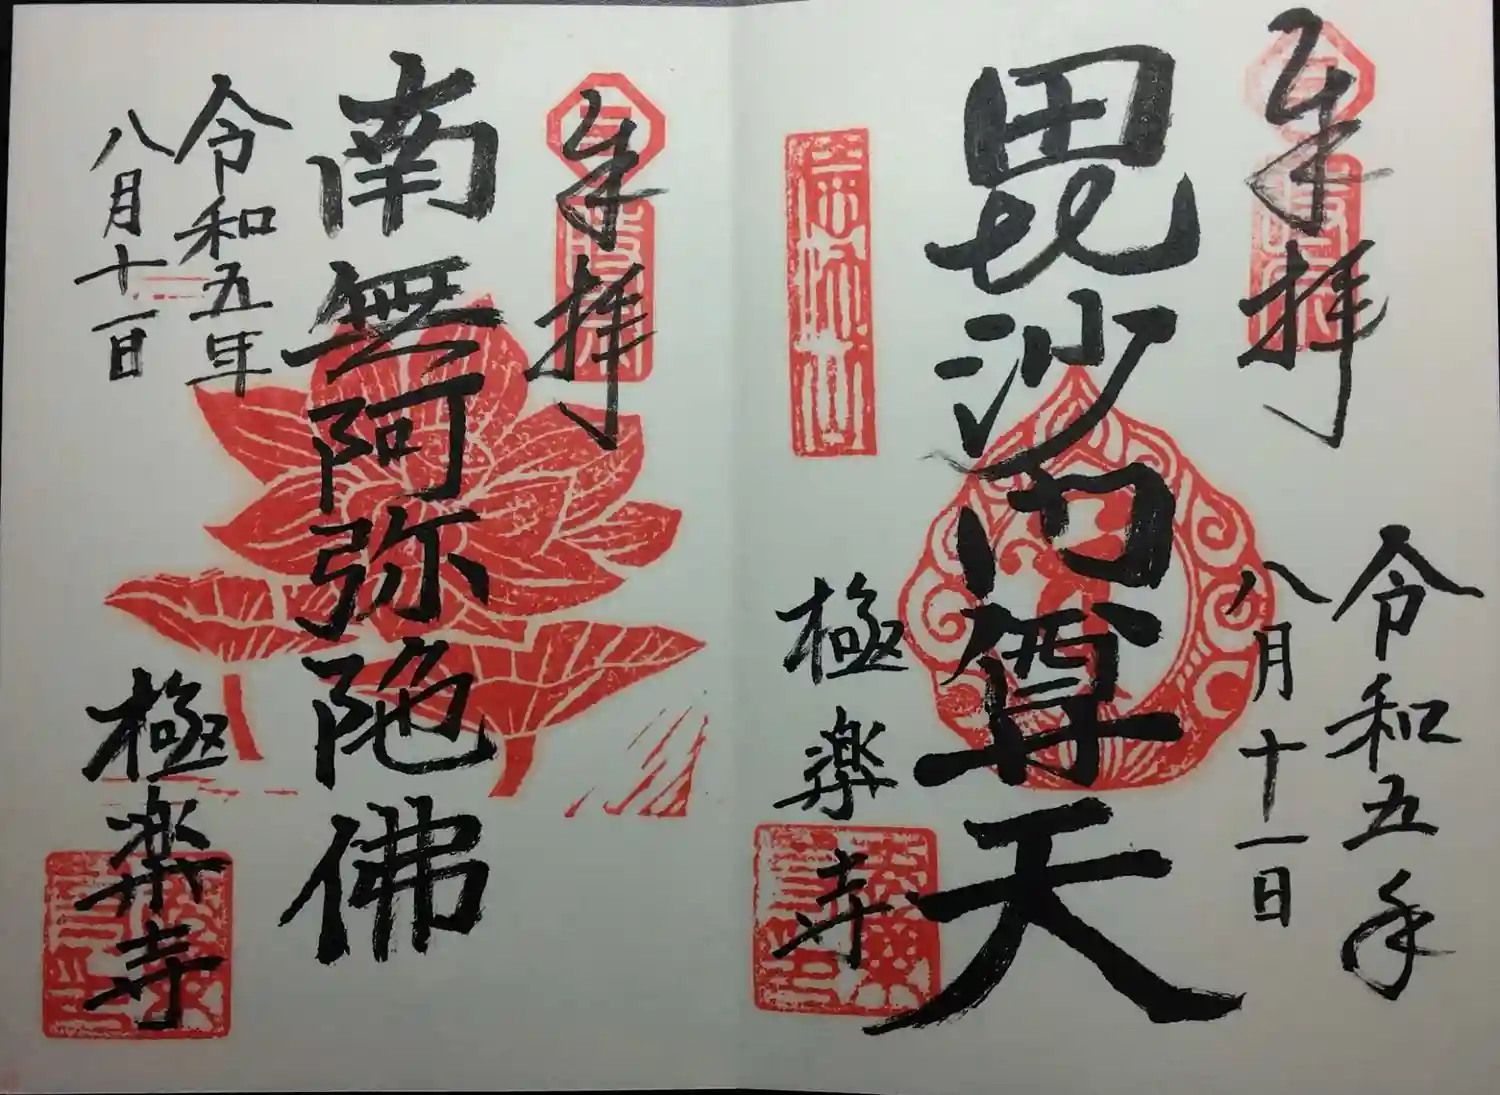 奉拝
令和五年
八月十一日
毘沙門尊天
極楽寺
奉拝
南無阿弥陀佛
令和五年
八月十一日
極楽寺